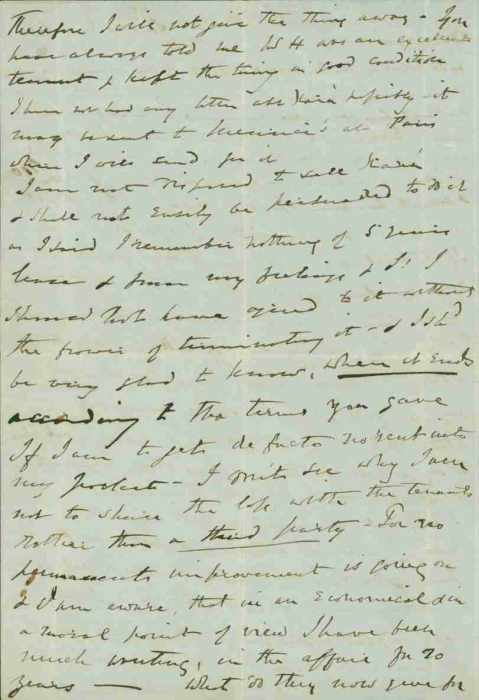 Therefore I will not give the thing away – You
have always told me W H was an excellent
tenant & kept the thing in good condition
I have not had any letter
may
when I will send for it
I am not disposed to sell
& shall not easily be persuaded to do it
as I said I remember nothing of 5 years
lease & from my feelings &
should not have agreed to it without
the power of terminating it – & I shd
be very glad to know, when it ends
according to the terms you gave
If I am to get de facto no rent into
my pocket – I don't see why I am
not to share the loss with the tenants
rather than a third party – For no
permanent improvement is going on
& I am aware, that in an Economical &in
a moral point of view I have been
much wanting, in the affair for 20
years — What do they now give for